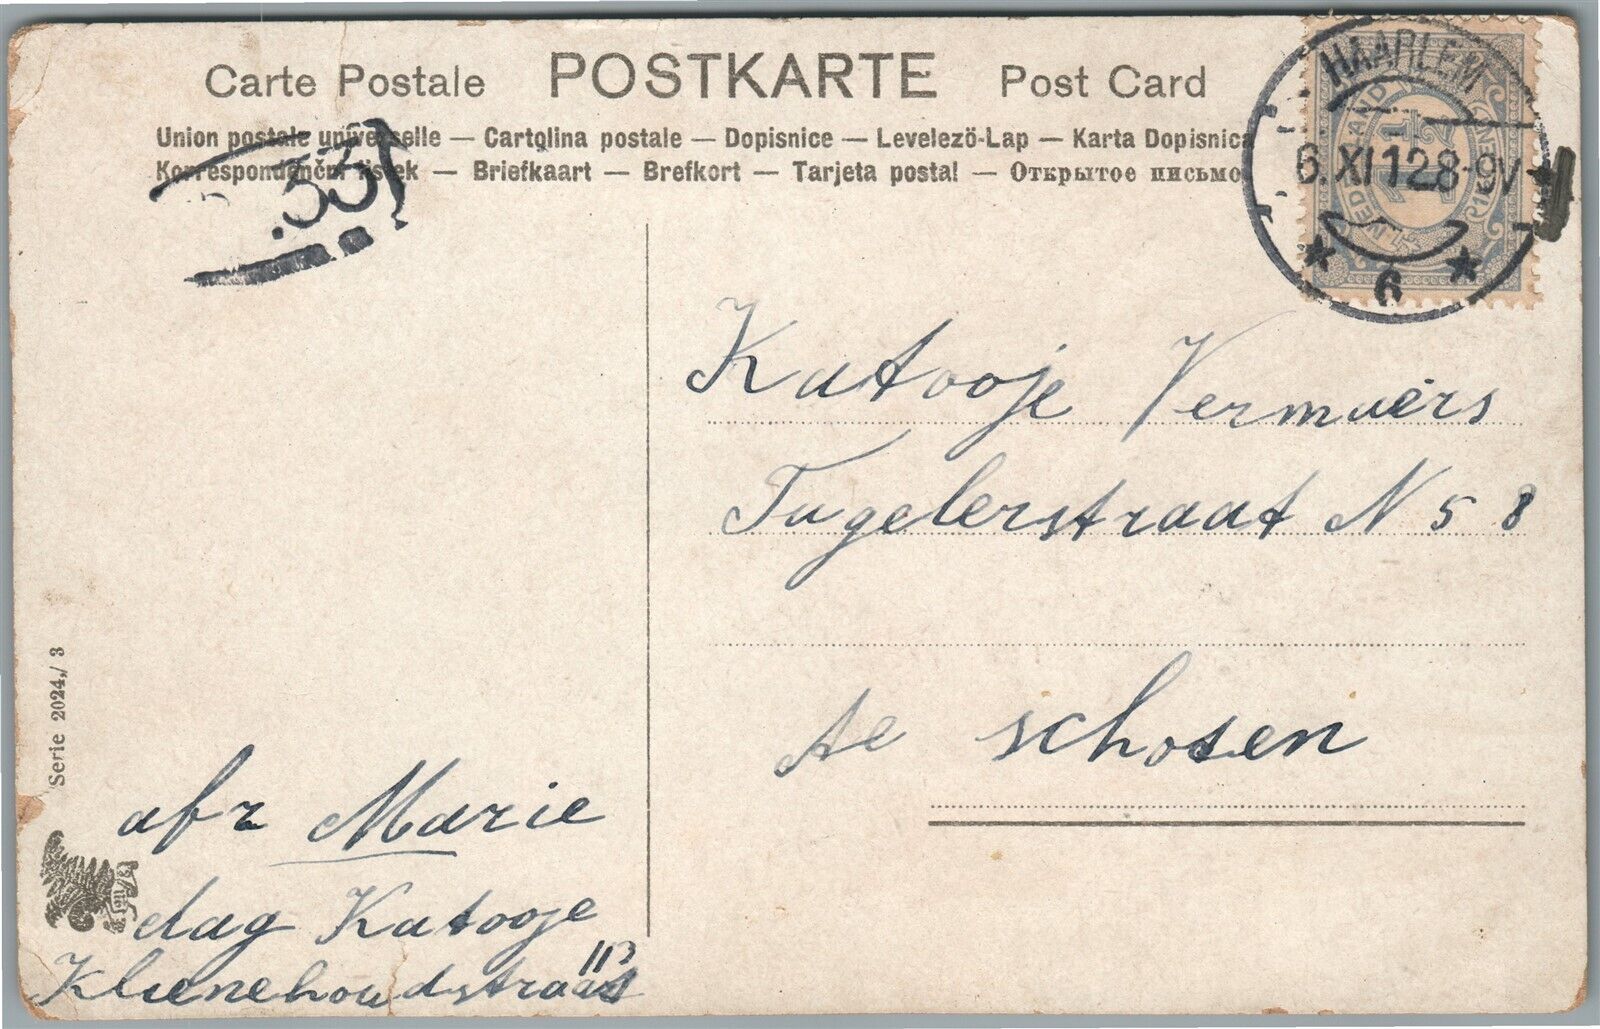 Carte Postale POSTKARTE Post Card
Union postale universelle — Cartolina postale — Dopisnice — Levelező-Lap — Karta Dopisnica
Korrespondenční lístek — Briefkaart — Brefkort — Tarjeta postal — Открытое письмо
HAARLEM
6.XI.12 8-9V
6
.33
Katooje Vermuërs
Tugelerstraat N 58
te schoten
Serie 2024/3
afz Marie
dag Katooje
113
Kleinehoudstraat